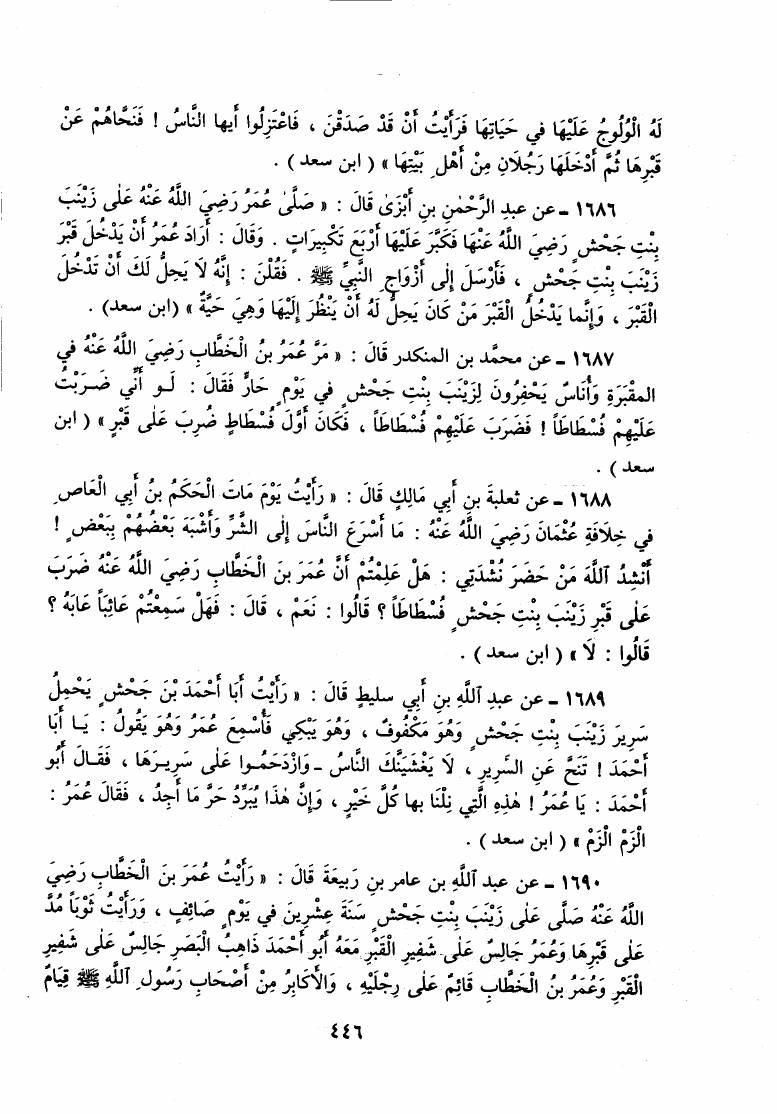 لَهُ الْوُلُوجُ عَلَيْهَا في حَيَاتِهَا فَرَأَيْتُ أَنْ قَدْ صَدَقْنَ ، فَاعْتَزِلُوا أيها النَّاسُ ! فَنَحَّاهُمْ عَنْ
قَبْرِهَا ثُمَّ أَدْخَلَهَا رَجُلَانِ مِنْ أَهْلِ بَيْتِهَا » ( ابن سعد ) .
١٦٨٦ - عن عبدِ الرَّحْمٰنِ بنِ أَبْزَىٰ قَالَ : « صَلَّىٰ عُمَرُ رَضِيَ اللَّهُ عَنْهُ عَلى زَيْنَبَ
بِنْتِ جَحْشٍ رَضِيَ اللَّهُ عَنْهَا فَكَبَّرَ عَلَيْهَا أَرْبَعَ تَكْبِيرَاتٍ . وَقَالَ : أَرَادَ عُمَرُ أَنْ يَدْخُلَ قَبْرَ
زَيْنَبَ بِنْتِ جَحْشٍ ، فَأَرْسَلَ إِلى أَزْوَاجِ النَّبِيِّ ﷺ . فَقُلْنَ : إِنَّهُ لَا يَحِلُّ لَكَ أَنْ تَدْخُلَ
الْقَبْرَ ، وَإِنَّما يَدْخُلُ الْقَبْرَ مَنْ كَانَ يَحِلُّ لَهُ أَنْ يَنْظُرَ إِلَيْهَا وَهِيَ حَيَّةٌ » (ابن سعد) .
١٦٨٧ - عن محمَّد بن المنكدر قَالَ : « مَرَّ عُمَرُ بنُ الْخَطَّابِ رَضِيَ اللَّهُ عَنْهُ في
المقبَرَةِ وَأُنَاسٌ يَحْفِرُونَ لِزَيْنَبَ بِنْتِ جَحْشٍ في يَوْمٍ حَارٍّ فَقَالَ : لَـو أَنِّي ضَـرَبْتُ
عَلَيْهِمْ فُسْطَاطَاً ! فَضَرَبَ عَلَيْهِمْ فُسْطَاطَاً ، فَكَانَ أَوَّلَ فُسْطَاطٍ ضُرِبَ عَلى قَبْرٍ » ( ابن
سعد ) .
١٦٨٨ - عن ثعلبةَ بنِ أَبِي مَالِكٍ قَالَ : « رَأَيْتُ يَوْمَ مَاتَ الْحَكَمُ بنُ أَبِي الْعَاصِ
في خِلَافَةِ عُثْمَانَ رَضِيَ اللَّهُ عَنْهُ : مَا أَسْرَعَ النَّاسَ إِلى الشَّرِّ وَأَشْبَهَ بَعْضُهُمْ بِبَعْضٍ !
أَنْشِدُ آللَّهَ مَنْ حَضَرَ نُشْدَتِي : هَلْ عَلِمْتُمْ أَنَّ عُمَرَ بنَ الْخَطَّابِ رَضِيَ اللَّهُ عَنْهُ ضَرَبَ
عَلى قَبْرِ زَيْنَبَ بِنْتِ جَحْشٍ فُسْطَاطَاً ؟ قَالُوا : نَعَمْ ، قَالَ : فَهَلْ سَمِعْتُمْ عَائِبَاً عَابَهُ ؟
قَالُوا : لَا » ( ابن سعد ) .
١٦٨٩ - عن عبدِ آللَّهِ بنِ أَبِي سليطٍ قَالَ : « رَأَيْتُ أَبَا أَحْمَدَ بْنَ جَحْشٍ يَحْمِلُ
سَرِيرَ زَيْنَبَ بِنْتِ جَحْشٍ وَهُوَ مَكْفُوفٌ ، وَهُوَ يَبْكِي فَأَسْمِعَ عُمَرُ وَهُوَ يَقُولُ : يَـا أَبَا
أَحْمَدَ ! تَنَحَّ عَنِ السَّرِيرِ ، لَا يَغْشَيَنَّكَ النَّاسُ - وَازْدَحَمُـوا عَلى سَرِيـرِهَا ، فَقَـالَ أَبُو
أَحْمَدَ : يَا عُمَرُ ! هٰذِهِ الَّتِي نِلْنَا بها كُلَّ خَيْرٍ ، وَإِنَّ هٰذَا يُبَرِّدُ حَرَّ مَا أَجِدُ ، فَقَالَ عُمَرُ :
الْزَمْ الْزَمْ » ( ابن سعد ) .
١٦٩٠ - عن عبد آللَّهِ بن عامر بنِ رَبِيعَةَ قَالَ : « رَأَيْتُ عُمَرَ بنَ الْخَطَّابِ رَضِيَ
اللَّهُ عَنْهُ صَلَّى عَلى زَيْنَبَ بِنْتِ جَحْشٍ سَنَةَ عِشْرِينَ في يَوْمٍ صَائِفٍ ، وَرَأَيْتُ ثَوْبَاً مُدَّ
عَلى قَبْرِهَا وَعُمَرُ جَالِسٌ عَلى شَفِيرِ الْقَبْرِ مَعَهُ أَبُو أَحْمَدَ ذَاهِبُ الْبَصَرِ جَالِسٌ عَلى شَفِيرِ
الْقَبْرِ وَعُمَرُ بنُ الْخَطَّابِ قَائِمٌ عَلى رِجْلَيْهِ ، وَالأَكَابِرُ مِنْ أَصْحَابِ رَسُولِ آللَّهِ ﷺ قِيَامٌ
٤٤٦